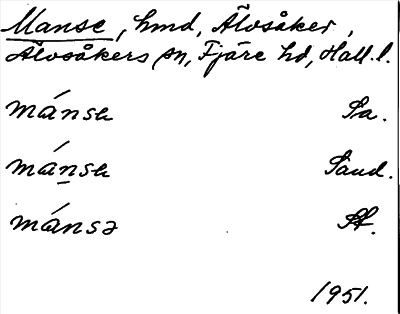 Manse, hmd, Älvsåker,
Älvsåkers sn, Fjäre hd, Hall. l.
mánsɐ Sa.
mánsɐ Sand.
mánsə
1951.